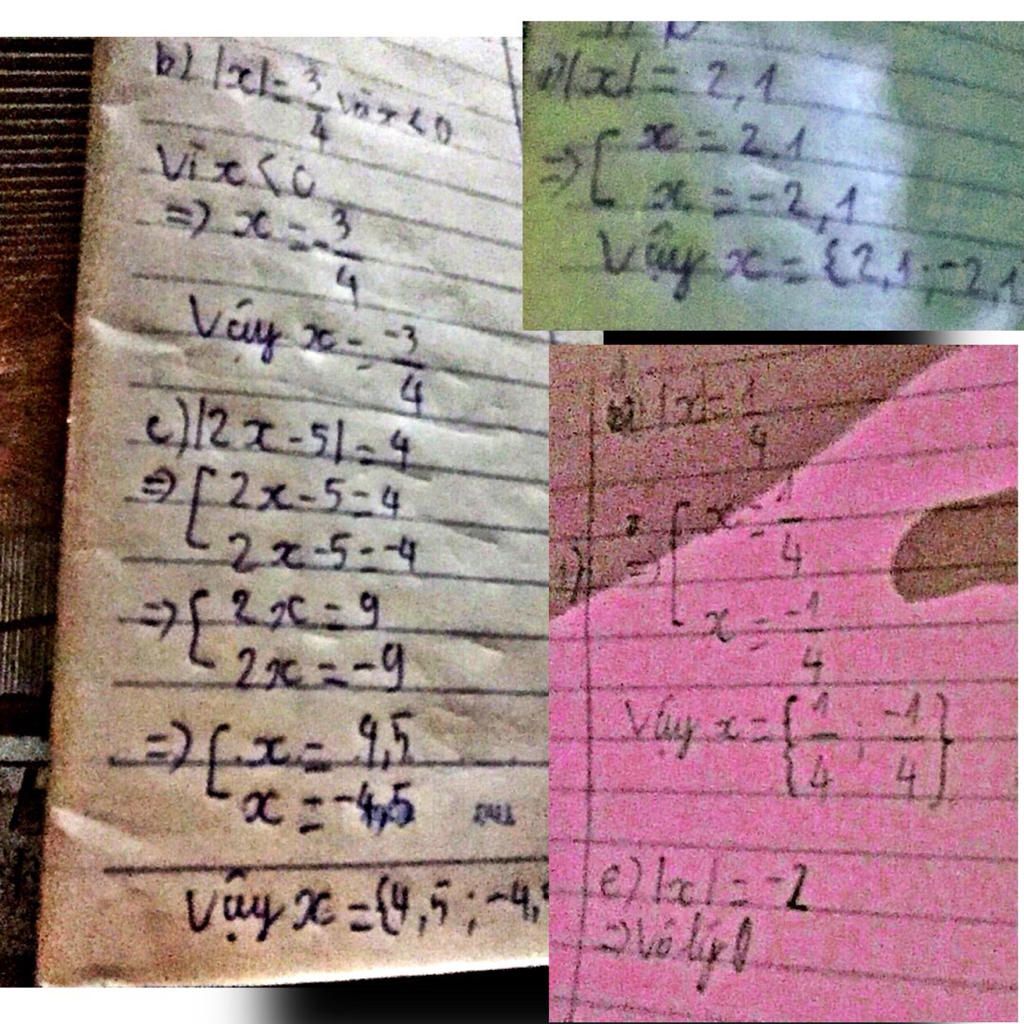 b) |x| = 3/4 với x < 0
Vì x < 0
=> x = -3/4
Vậy x = -3/4
c) |2x - 5| = 4
=> [ 2x - 5 = 4
2x - 5 = -4
=> [ 2x = 9
2x = -9
=> [ x = 4,5
x = -4,5
Vậy x = {4,5 ; -4,
|x| = 2,1
=> [ x = 2,1
x = -2,1
Vậy x = {2,1 ; -2,1
|x| = 1/4
=> [ x = 1/4
x = -1/4
Vậy x = {1/4 ; -1/4}
e) |x| = -2
=> Vô lý